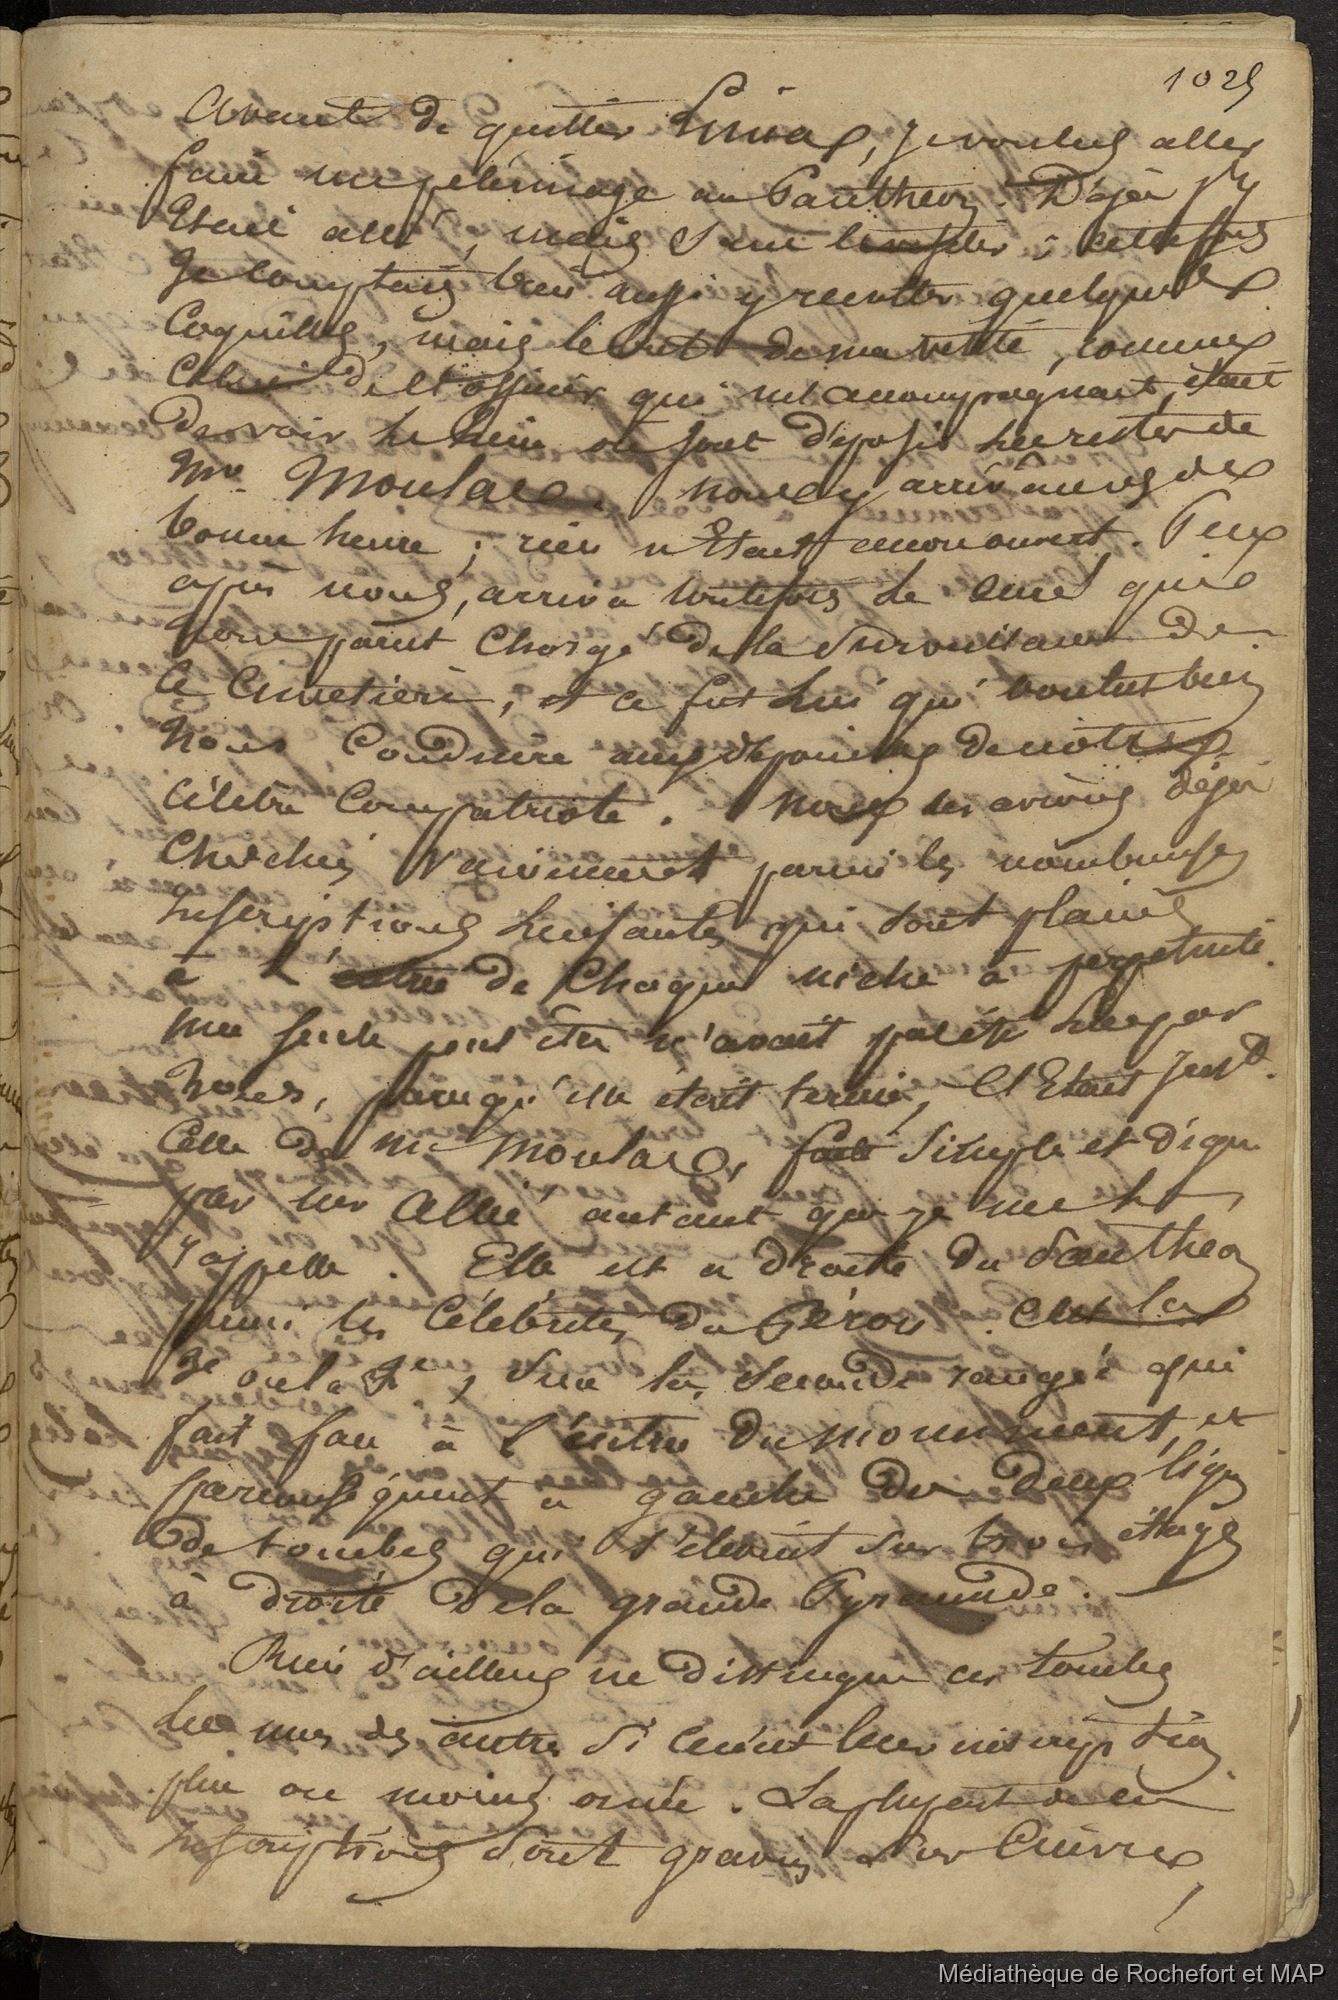 1025
Avant de quitter Lima, je voulus aller
faire un pélérinage au Panthéon. Déjà j'y
Etais allé, mais sans ; cette fois
Je comptais bien aussi y récolter quelques
Coquilles, mais le but de ma visite, comme
Celui de l'officier qui m'accompagnait, était
De voir le lieu où sont déposés les restes de
Mr. Moulac. Nous y arrivâmes de
bonne heure ; rien n'Etait encore ouvert. Peu
après nous, arriva toutefois le curé qui
nous parut chargé de la surveillance de
ce Cimetière, et ce fut lui qui voulut bien
Nous conduire aux dépouilles de notre
Célèbre Compatriote. Nous les avions déjà
Cherchés vainement parmi les nombreuses
Inscriptions luisantes qui sont placées
à l'entrée de chaque niche à perpétuité.
une seule peut être n'avait pas été lue par
Nous, parcequ'elle était ternie, C'Etait just.
Celle de Mr Moulac, simple et digne
par un Allié autant que je me le
rappelle. Elle est à droite du Panthéon
parmi les Célébrités du Pérou. C'est la
7e ou la 9e, sur la seconde rangée qui
fait face à l'entrée du monument, et
par conséquent à gauche des deux lignes
de tombes qui s'élèvent sur trois étages
à droite de la grande Pyramide.
Rien d'ailleurs ne distingue ces tombes
les unes des autres si ce n'est leur inscription
plus ou moins ornée. La plupart de ces
Inscriptions sont gravées sur Cuivre,
Médiathèque de Rochefort et MAP